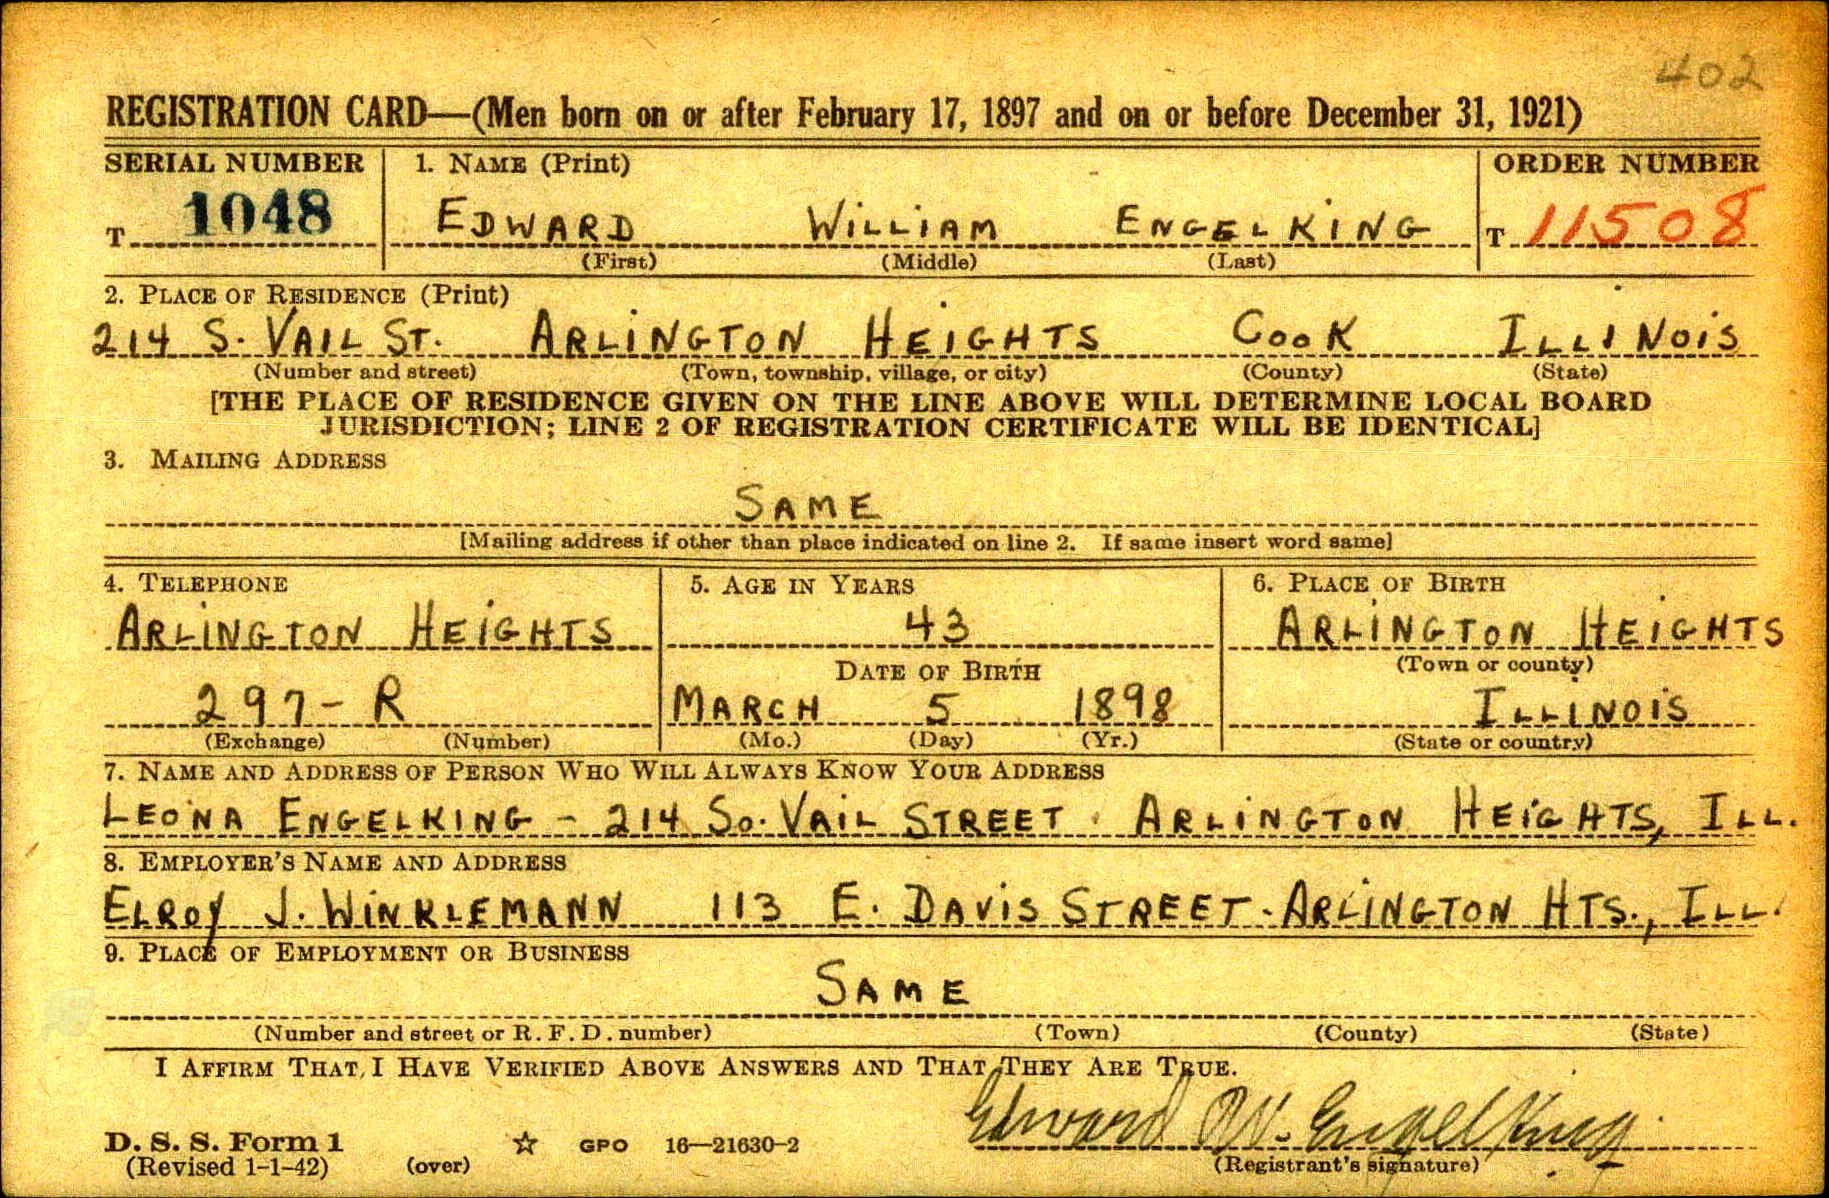 402
REGISTRATION CARD—(Men born on or after February 17, 1897 and on or before December 31, 1921)
SERIAL NUMBER 1. NAME (Print) ORDER NUMBER
T 1048 EDWARD WILLIAM ENGELKING T 11508
(First) (Middle) (Last)
2. PLACE OF RESIDENCE (Print)
214 S. VAIL ST. ARLINGTON HEIGHTS COOK ILLINOIS
(Number and street) (Town, township, village, or city) (County) (State)
[THE PLACE OF RESIDENCE GIVEN ON THE LINE ABOVE WILL DETERMINE LOCAL BOARD
JURISDICTION; LINE 2 OF REGISTRATION CERTIFICATE WILL BE IDENTICAL]
3. MAILING ADDRESS
SAME
[Mailing address if other than place indicated on line 2. If same insert word same]
4. TELEPHONE 5. AGE IN YEARS 6. PLACE OF BIRTH
ARLINGTON HEIGHTS 43 ARLINGTON HEIGHTS
DATE OF BIRTH (Town or county)
297-R MARCH 5 1898 ILLINOIS
(Exchange) (Number) (Mo.) (Day) (Yr.) (State or country)
7. NAME AND ADDRESS OF PERSON WHO WILL ALWAYS KNOW YOUR ADDRESS
LEONA ENGELKING - 214 SO. VAIL STREET ARLINGTON HEIGHTS, ILL.
8. EMPLOYER'S NAME AND ADDRESS
ELROY J. WINKLEMANN 113 E. DAVIS STREET. ARLINGTON HTS., ILL.
9. PLACE OF EMPLOYMENT OR BUSINESS
SAME
(Number and street or R. F. D. number) (Town) (County) (State)
I AFFIRM THAT I HAVE VERIFIED ABOVE ANSWERS AND THAT THEY ARE TRUE.
Edward W. Engelking
D. S. S. Form 1 ☆ GPO 16—21630-2
(Revised 1-1-42) (over) (Registrant's signature)